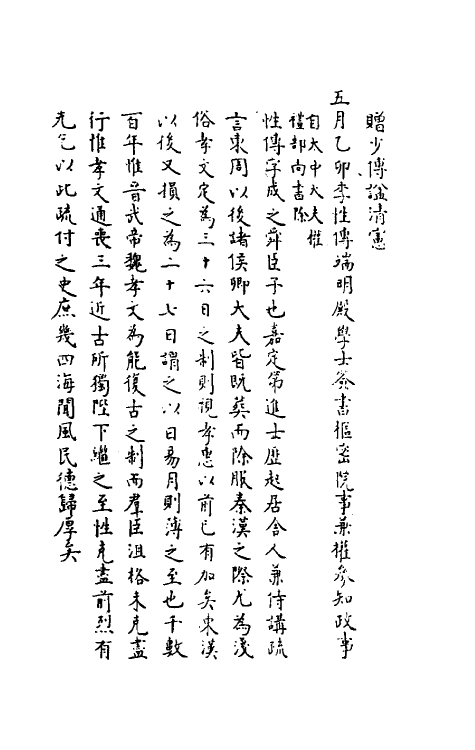 贈少傅諡清憲
五月乙卯李性傳端明殿學士簽書樞密院事兼權參知政事
自太中大夫權
禮部尚書除
性傳字成之舜臣子也嘉定第進士歷起居舍人兼侍講疏
言東周以後諸侯卿大夫皆既葬而除服秦漢之際尤為淺
俗孝文定為三十六日之制則視孝惠以前已有加矣東漢
以後又損之為二十七日謂之以日易月則薄之至也千數
百年惟晉武帝魏孝文為能復古之制而羣臣沮格未克盡
行惟孝文通喪三年近古所獨陛下繼之至性克盡前烈有
光乞以此疏付之史庶幾四海聞風民德歸厚矣